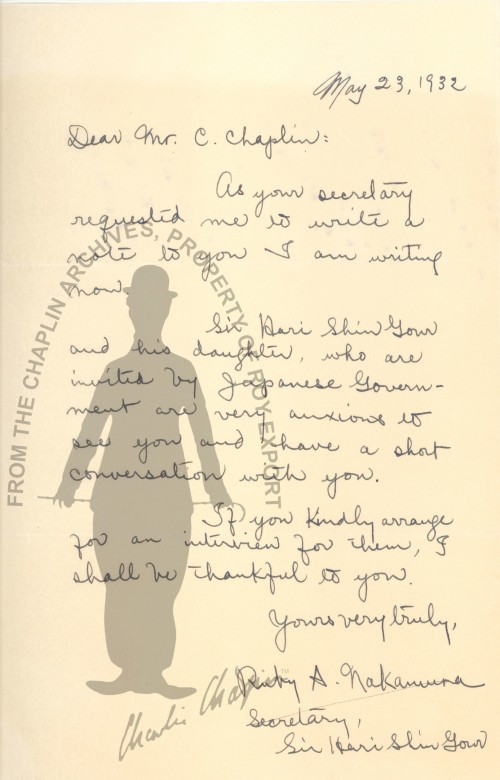 May 23, 1932
Dear Mr. C. Chaplin:
As your secretary
requested me to write a
note to you I am writing
now.
Sir Hari Shin Gour
and his daughter, who are
invited by Japanese Govern-
ment are very anxious to
see you and have a short
conversation with you.
If you kindly arrange
for an interview for them, I
shall be thankful to you.
Yours very truly,
A. Nakamura
Secretary,
Sir Hari Shin Gour
FROM THE CHAPLIN ARCHIVES, PROPERTY OF ROY EXPORT
Charlie Chaplin